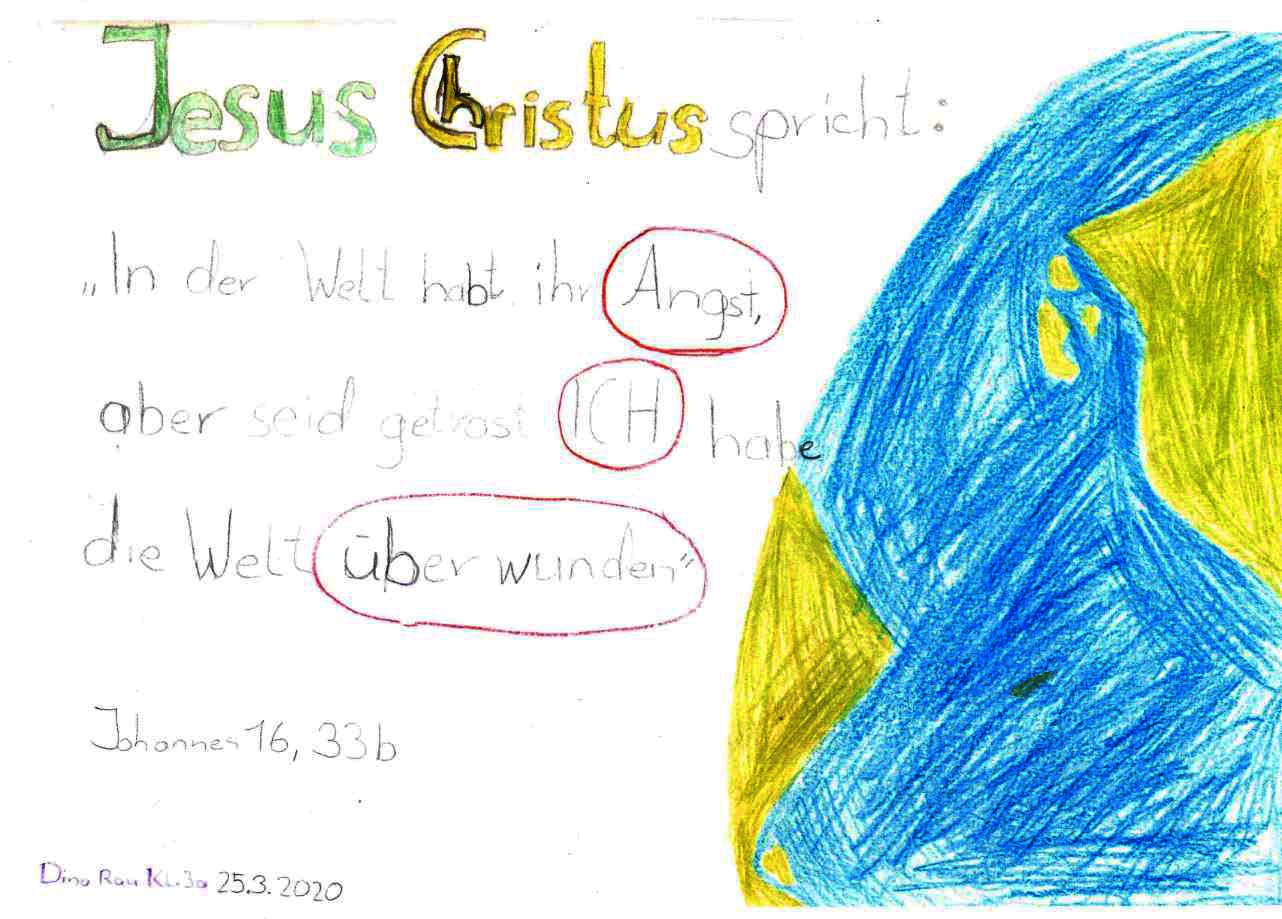 Jesus Christus spricht:
„In der Welt habt ihr Angst,
aber seid getrost ICH habe
die Welt überwunden"
Johannes 16, 33b
Dino Rau Kl.3a 25.3.2020